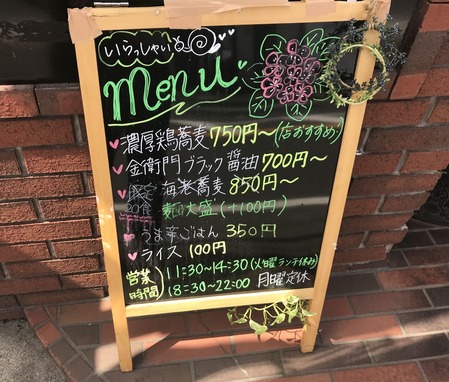 いらっしゃいませ
menu
濃厚鶏蕎麦 750円～(店おすすめ)
金衛門ブラック醤油 700円～
限定 海老蕎麦 850円～
麺大盛(+100円)
うま辛ごはん 350円
ライス 100円
営業時間 11:30~14:30(火曜ランチ休み)
18:30~22:00 月曜定休